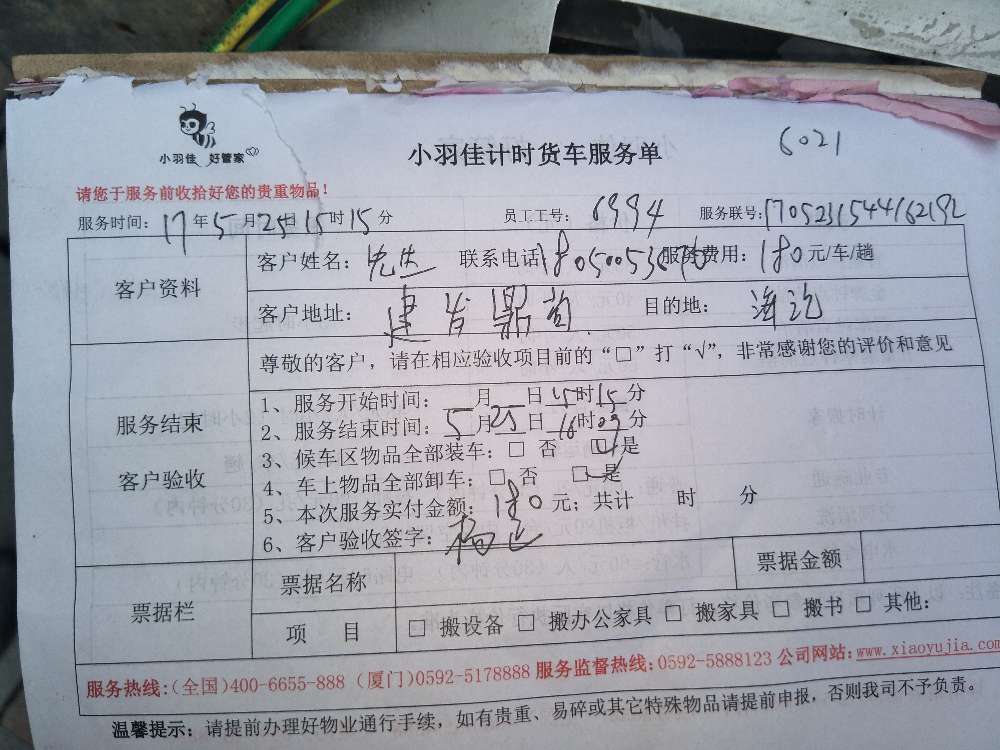 6021
小羽佳 好管家
小羽佳计时货车服务单
请您于服务前收拾好您的贵重物品！
服务时间：17年5月25日15时15分 员工工号：6994 服务联号：
客户资料
客户姓名：先生 联系电话 服务费用：180元/车/趟
客户地址：建 鼎尚 目的地：海沧
尊敬的客户，请在相应验收项目前的“□”打“√”，非常感谢您的评价和意见
服务结束
客户验收
1、服务开始时间： 月 日15时15分
2、服务结束时间：5月25日16时 分
3、候车区物品全部装车：□ 否 ☑ 是
4、车上物品全部卸车：□ 否 ☑ 是
5、本次服务实付金额：180元；共计 时 分
6、客户验收签字：杨
票据栏
票据名称 票据金额
项 目 □ 搬设备 □ 搬办公家具 □ 搬家具 □ 搬书 □ 其他：
服务热线：(全国)400-6655-888 (厦门)0592-5178888 服务监督热线：0592-5888123 公司网站：www.xiaoyujia.com
温馨提示：请提前办理好物业通行手续，如有贵重、易碎或其它特殊物品请提前申报，否则我司不予负责。